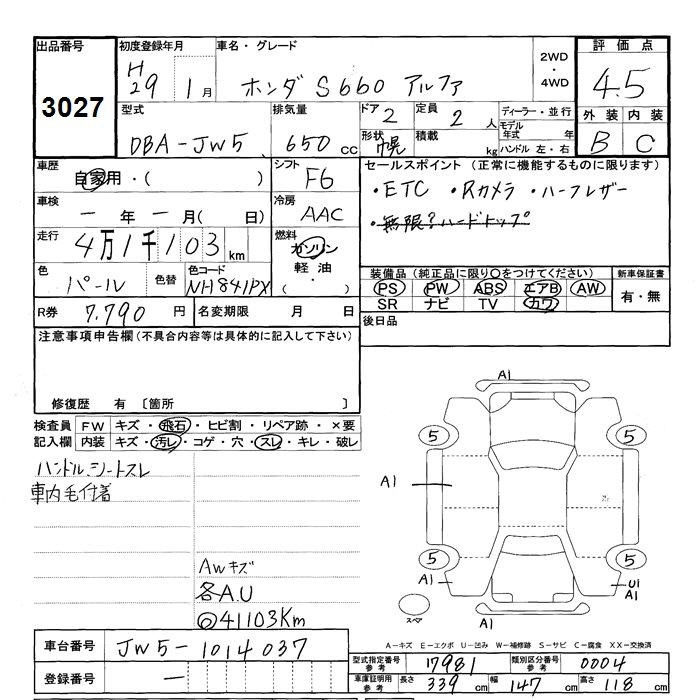 出品番号 初度登録年月 車名・グレード 評価点
3027 H29 1月 ホンダ S660 アルファ 2WD・4WD 4.5
型式 排気量 ドア 2 定員 2人 ディーラー・並行 外装 内装
DBA-JW5 650cc 形状 幌 積載 kg モデル年式 年 ハンドル 左・右 B C
車歴 自家用・( ) シフト F6 セールスポイント (正常に機能するものに限ります)
・ETC ・Rカメラ ・ハーフレザー
・無限?ハードトップ
車検 ー年ー月( 日) 冷房 AAC
走行 4万1千103km 燃料 ガソリン 軽油・( )
色 パール 色替 色コード NH841PX
装備品 (純正品に限り〇をつけてください) 新車保証書
PS PW ABS エアB AW 有・無
SR ナビ TV カワ
R券 7,790円 名変期限 月 日 後日品
注意事項申告欄 (不具合内容等は具体的に記入して下さい)
修復歴 有 〔箇所 〕
検査員 FW キズ・飛石・ヒビ割・リペア跡・×要
記入欄 内装 キズ・汚レ・コゲ・穴・スレ・キレ・破レ
ハンドル、シートスレ
車内毛付着
AWキズ
各A.U
◎41103Km
A1
5 5
A1
5 5
A1 U1
A1
スペア A1
車台番号 JW5-1014037
登録番号 ー
A-キズ E-エクボ U-凹み W-補修跡 S-サビ C-腐食 XX-交換済
型式指定番号 参考 17981 類別区分番号 参考 0004
車庫証明用 参考 長さ 339cm 幅 147cm 高さ 118cm